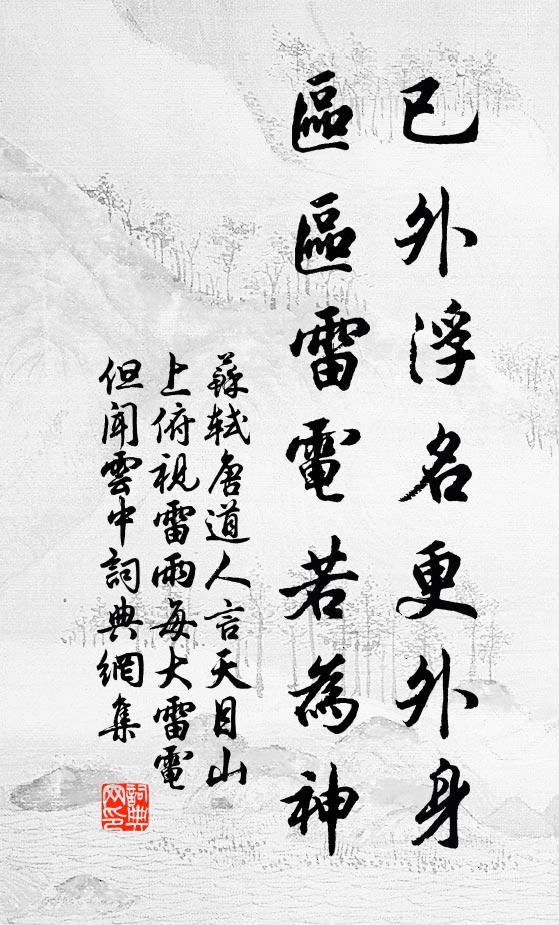 已外浮名更外身
區區雷電若為神
蘇軾唐道人言天目山
上俯視雷雨每大雷電
但聞雲中詞典網集
詞典网印